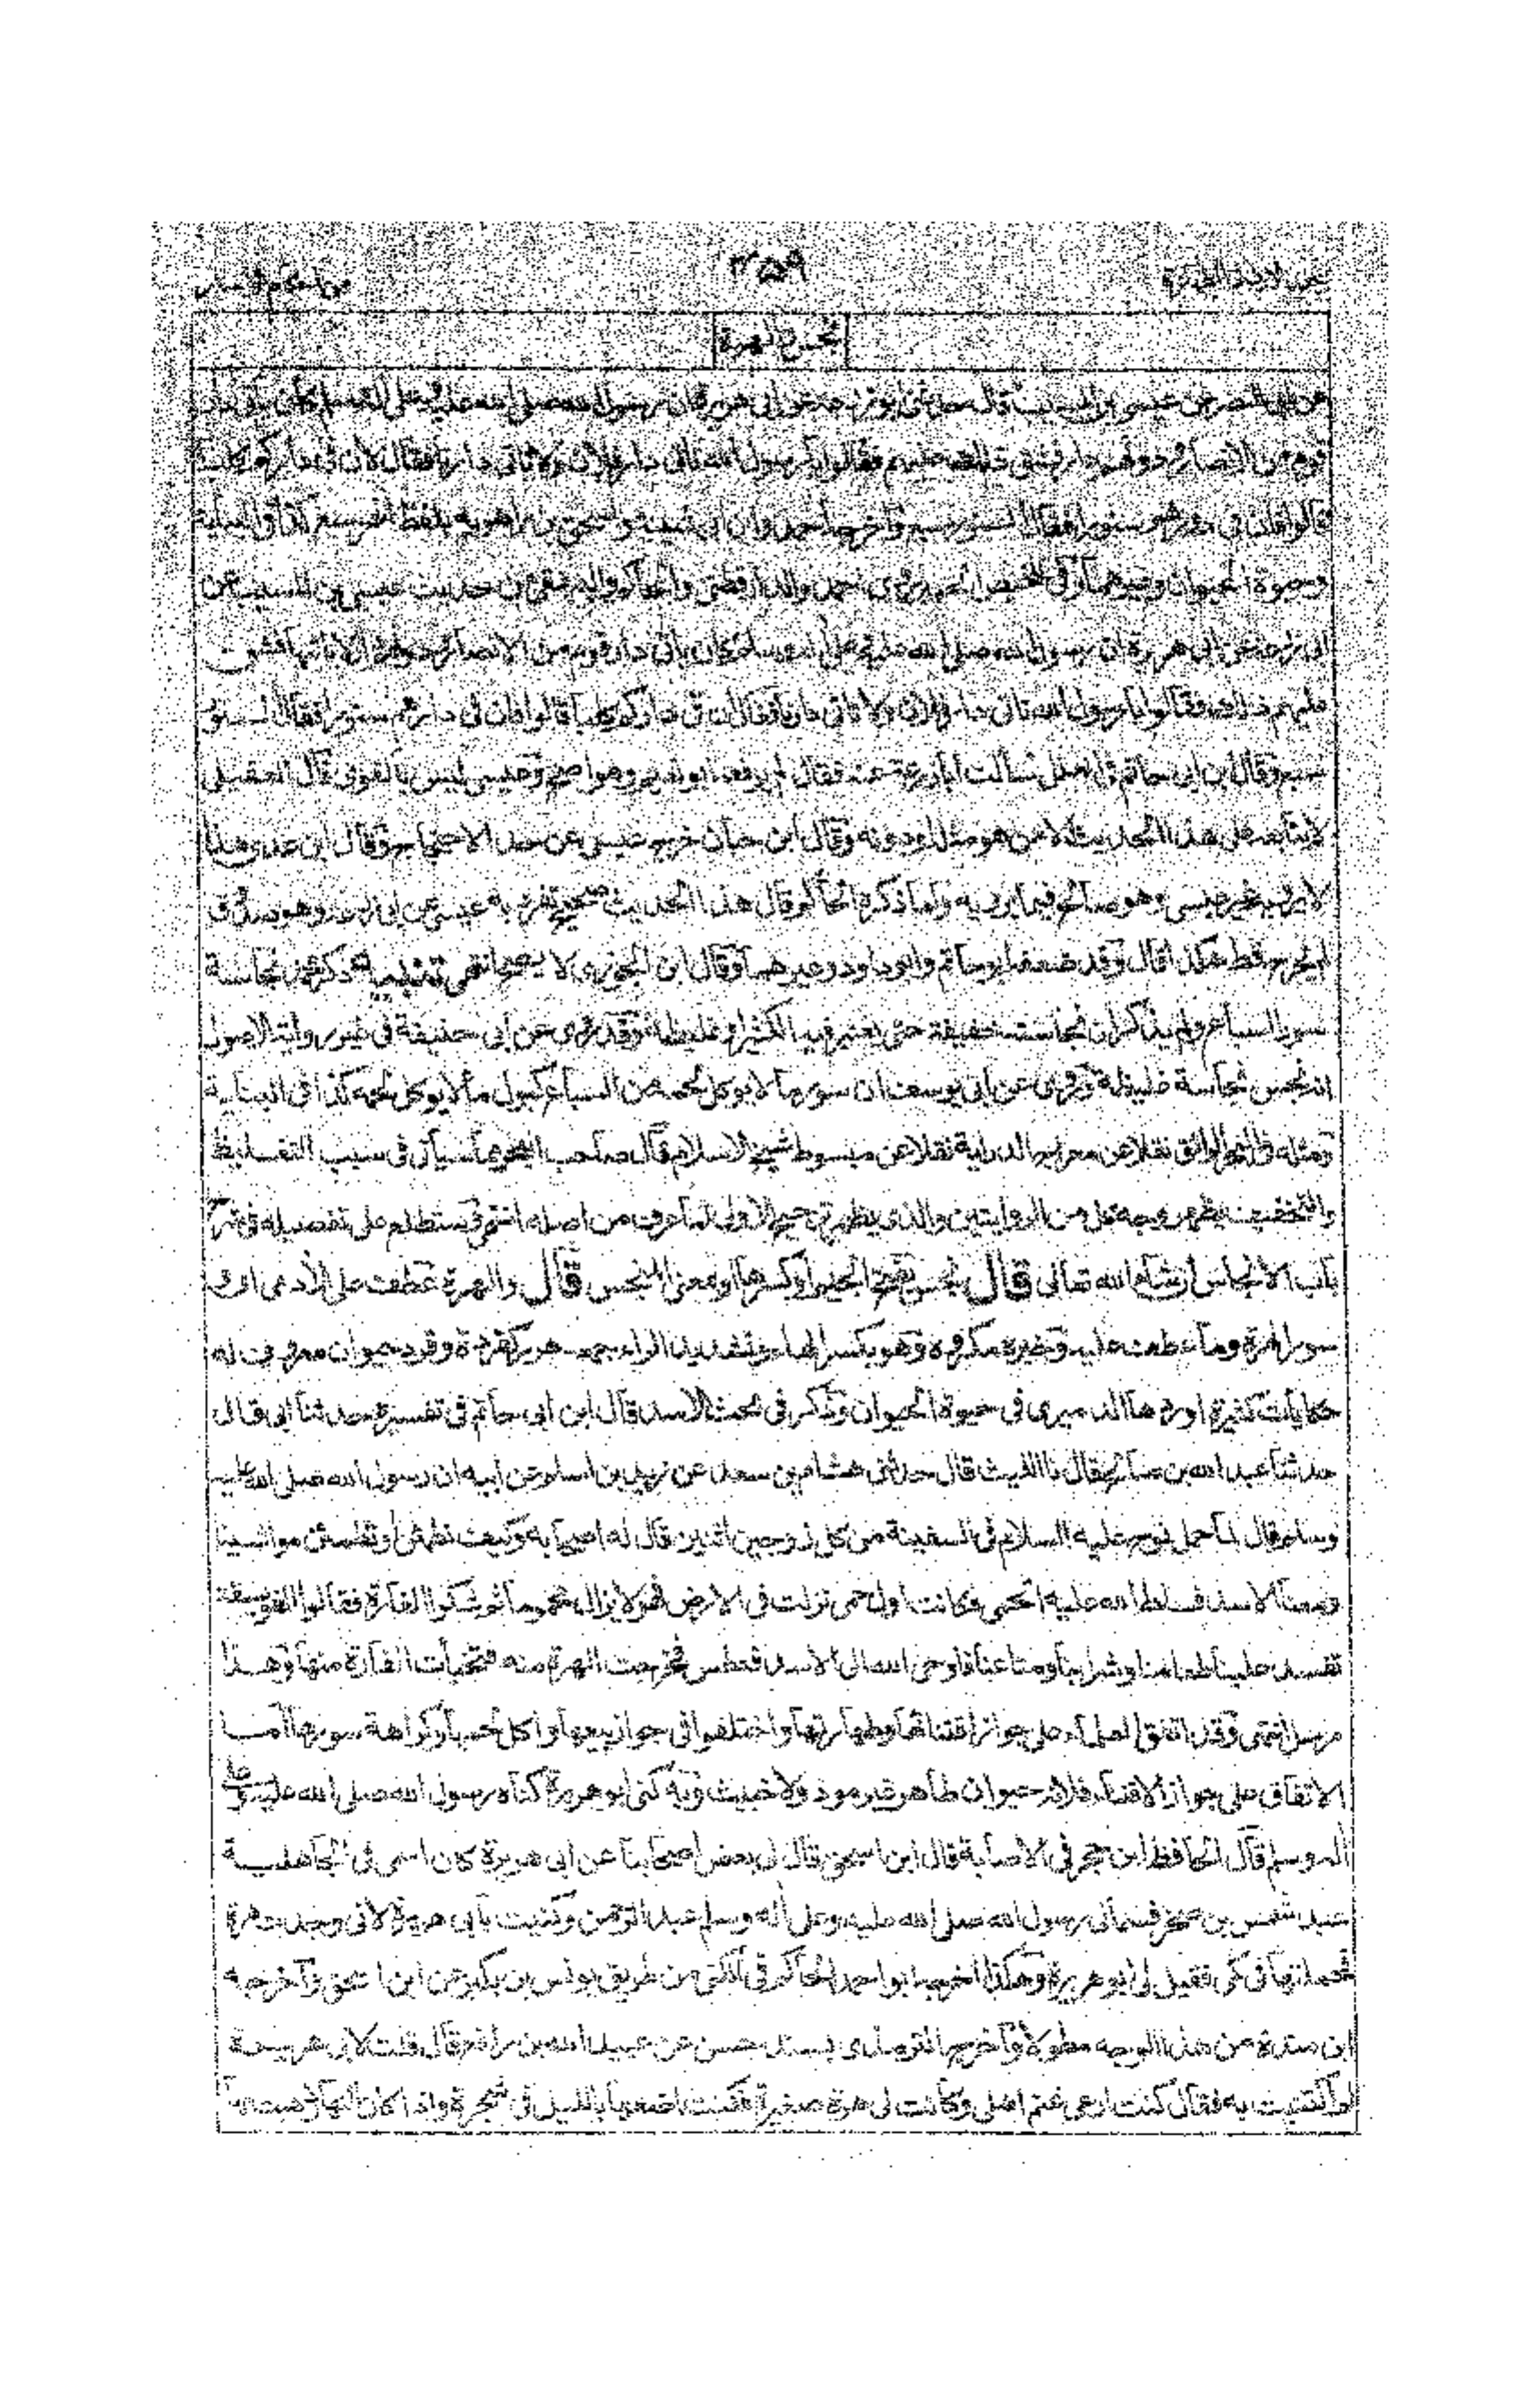 ٣٥٩
نجس والهرة
عن ابي النضر عن عيسى بن المسيب قال حدثني ابو زرعة عن ابي هريرة قال رسول الله صلى الله عليه وعلى آله وسلم يأتي دار
قوم من الانصار ودونهم دار فشق ذلك عليهم فقالوا يا رسول الله تأتي دار فلان ولا تأتي دارنا فقال لان في داركم كلبا
قالوا فان في دارهم سنورا فقال السنور سبع واخرجه احمد وابن ابي شيبة واسحق بن راهويه بلفظ الهر سبع كذا في البناية
وحيوة الحيوان وغيرهما وفي تلخيص الحبير روى احمد والدارقطني والحاكم والبيهقي من حديث عيسى بن المسيب عن
ابي زرعة عن ابي هريرة ان رسول الله صلى الله عليه وعلى آله وسلم كان يأتي دار قوم من الانصار ودونهم دار لا يأتيها فشق
عليهم ذلك فقالوا يا رسول الله تأتي دار فلان ولا تأتي دارنا فقال ان في داركم كلبا قالوا فان في دارهم سنورا فقال السنور
سبع وقال ابن ابي حاتم في العلل سألت ابا زرعة عنه فقال لم يرفعه ابو نعيم وهو اصح وعيسى ليس بالقوي قال العقيلي
لا يتابعه على هذا الحديث الا من هو مثله او دونه وقال ابن حبان خرج عيسى عن حد الاحتجاج وقال ابن عدي هذا
لا يرويه غير عيسى وهو صالح فيما يرويه ولما ذكره الحاكم قال هذا الحديث صحيح تفرد به عيسى عن ابي زرعة وهو صدوق
لم يجرح قط هكذا قال وقد ضعفه ابو حاتم وابو داود وغيرهما وقال ابن الجوزي لا يصح انتهى تنبيه ذكر نجاسة
سور السباع ولم يذكر ان نجاسته خفيفة حتى يعتبر فيه الكثير او غليظة وقد روى عن ابي حنيفة في غير رواية الاصول
انه نجس نجاسة غليظة وروى عن ابي يوسف ان سور ما لا يوكل لحمه من السباع كبول ما لا يوكل لحمه كذا في البناية
ومثله في البحر الرائق نقلا عن معراج الدراية نقلا عن مبسوط شيخ الاسلام قال صاحب البحر وبما سيأتي في سبب التغليظ
والتخفيف يظهر وجه كل من الروايتين والذي يظهر ترجيح الاولى لما عرف من اصله انتهى وستطلع على تفصيله في شرح
باب الانجاس ان شاء الله تعالى قال نجس بفتح الجيم او بكسرها او بمعنى المنجس قال والهرة عطف على الآدمي اى و
سور الهرة وما عطفت عليه وخبره مكروه وهو بكسر الهاء وتشديد الراء جمعه هرر كقردة وقرد حيوان معروف له
حكايات كثيرة اوردها الدميري في حيوة الحيوان وذكر في بحث الاسد قال ابن ابي حاتم في تفسيره حدثنا ابي قال
حدثنا عبد الله بن صالح قال نا الليث قال حدثني هشام بن سعد عن زيد بن اسلم عن ابيه ان رسول الله صلى الله عليه
وسلم قال لما حمل نوح عليه السلام في السفينة من كل زوجين اثنين قال له اصحابه وكيف نطمئن او تطمئن مواشينا
ومعنا الاسد فسلط الله عليه الحمى وكانت اول حمى نزلت في الارض فهو لا يزال محموما ثم شكوا الفارة فقالوا الفويسقة
تفسد علينا طعامنا وشرابنا ومتاعنا فاوحى الله الى الاسد فعطس فخرجت الهرة منه فتخبأت الفأرة منها وهذا
مرسل انتهى وقد اتفق العلماء على جواز اقتنائها وطهارتها واختلفوا في جواز بيعها واكل لحمها وكراهة سورها اما
الاتفاق على جواز الاقتناء فلانه حيوان طاهر غير موذ ولا خبيث وبه كنى ابو هريرة كناه رسول الله صلى الله عليه وعلى
آله وسلم قال الحافظ ابن حجر في الاصابة قال ابن اسحق قال لي بعض اصحابنا عن ابي هريرة كان اسمى في الجاهلية
عبد شمس بن صخر فسماني رسول الله صلى الله عليه وعلى آله وسلم عبد الرحمن وكنيت بأبي هريرة لاني وجدت هرة
فحملتها في كمى فقيل لي ابو هريرة وهكذا اخرجه ابو احمد الحاكم في الكنى من طريق يونس بن بكير عن ابن اسحق واخرجه
ابن مندة من هذا الوجه مطولا واخرجه الترمذي بسند حسن عن عبيد الله بن رافع قال قلت لابي هريرة
لم اكتنيت به فقال كنت ارعى غنم اهلى وكانت لي هرة صغيرة فكنت اضعها بالليل في شجرة واذا كان النهار ذهبت بها